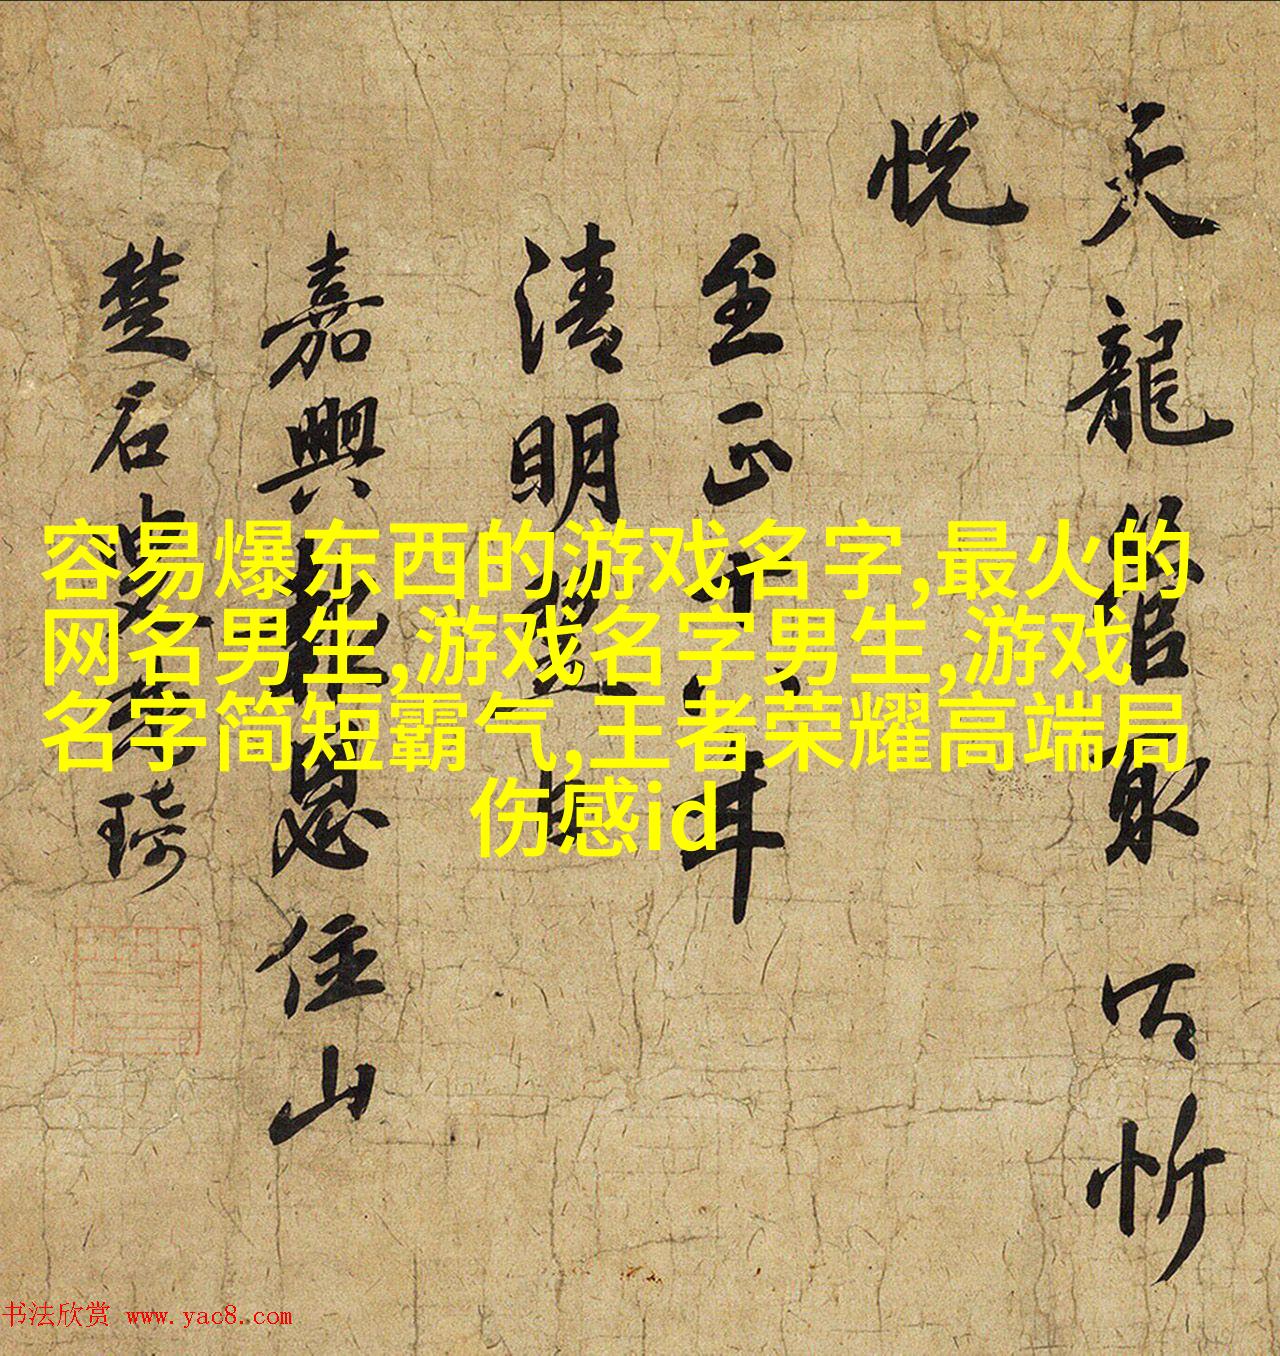 容易爆东西的游戏名字,最火的
网名男生,游戏名字男生,游戏
名字简短霸气,王者荣耀高端局
伤感id
天龍取忻
悦
至正年
清明望日
嘉興報恩住山
楚石琦
书法欣赏 www.yac8.com